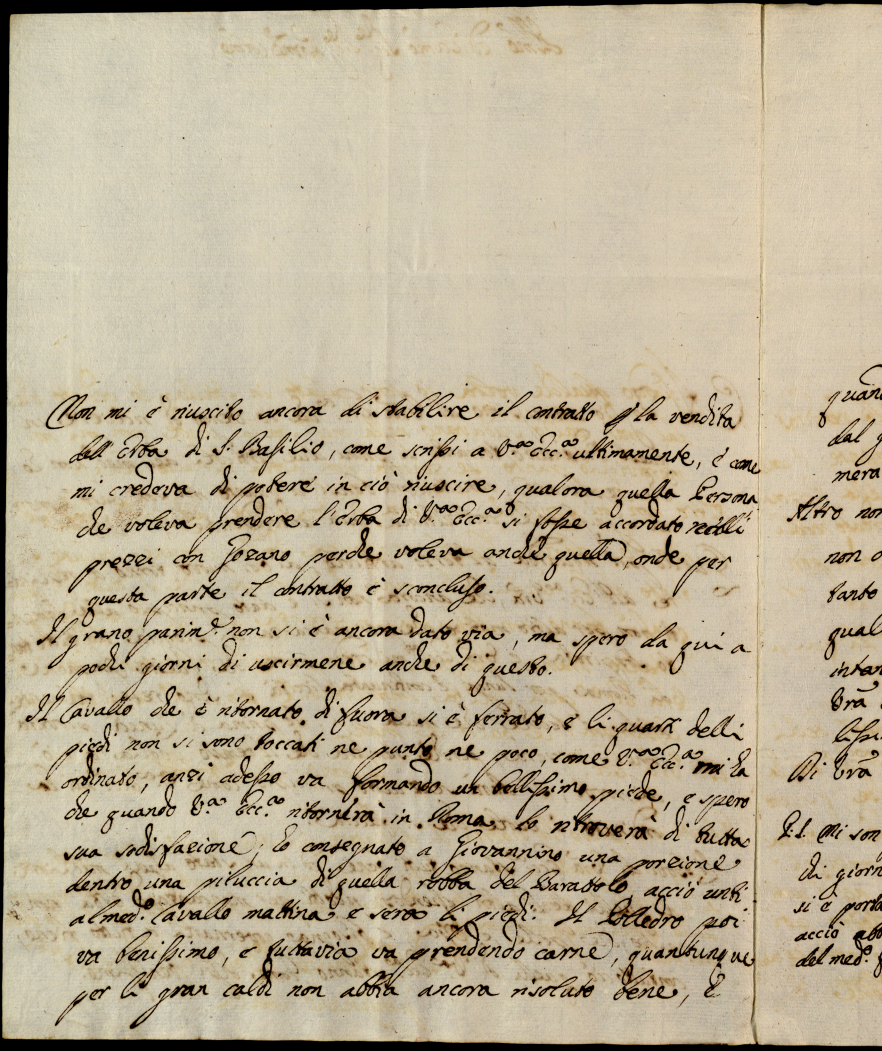 Non mi è riuscito ancora di stabilire il contratto p la vendita
dell'Erba di S. Basilio, come scrissi a V.ra Ecc.a ultimamente, e come
mi credeva di potere in ciò riuscire, qualora quella Persona
che voleva prendere l'Erba di V.ra Ecc.a si fosse accordato nelli
prezzi con Gozano perche voleva anche quella, onde per
questa parte il contratto è sconcluso.
Il grano non si è ancora dato via, ma spero da qui a
pochi giorni di uscirmene anche di questo.
Il Cavallo che è ritornato di fuora si è ferrato, e li quarti delli
piedi non si sono toccati ne punto ne poco, come V.ra Ecc.a mi ha
ordinato, anzi adesso va formando un bellissimo piede, e spero
che quando V.ra Ecc.a ritornerà in Roma lo ritroverà di tutta
sua sodisfazione; Ho consegnato a Giovannino una porzione
dentro una piluccia di quella robba del Barattolo, acciò unti
al med.o Cavallo mattina e sera li piedi. Il Polledro poi
va benissimo, e tuttavia va prendendo carne, quantunque
per li gran caldi non abbia ancora risoluto bene, E
quan
dal g
mera
Altro non
non o
tanto
qual
intan
Vrā
lissi
Di Vrā
P.S. Mi son
di giorn
si è porta
acciò abb
del med.o